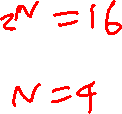 2ᴺ = 16
N = 4